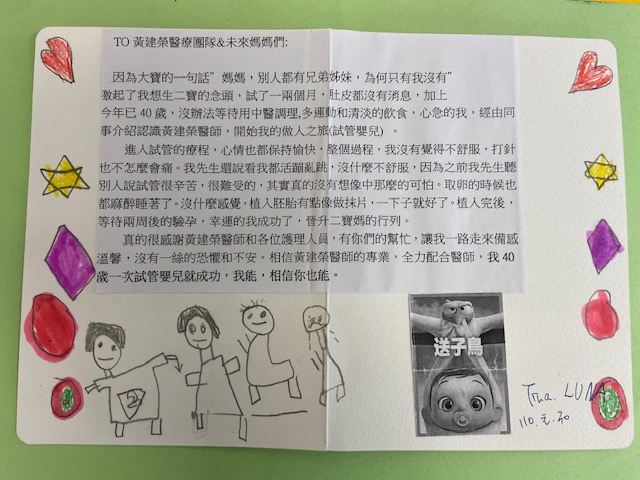 TO 黃建榮醫療團隊&未來媽媽們:
因為大寶的一句話"媽媽，別人都有兄弟姊妹，為何只有我沒有"
激起了我想生二寶的念頭，試了一兩個月，肚皮都沒有消息，加上
今年已 40 歲，沒辦法等待用中醫調理,多運動和清淡的飲食，心急的我，經由同
事介紹認識黃建榮醫師，開始我的做人之旅(試管嬰兒)。
進入試管的療程，心情也都保持愉快，整個過程，我沒有覺得不舒服，打針
也不怎麼會痛。我先生還說看我都活蹦亂跳，沒什麼不舒服，因為之前我先生聽
別人說試管很辛苦，很難受的，其實真的沒有想像中那麼的可怕。取卵的時候也
都麻醉睡著了。沒什麼感覺，植入胚胎有點像做抹片，一下子就好了。植入完後，
等待兩周後的驗孕，幸運的我成功了，晉升二寶媽的行列。
真的很感謝黃建榮醫師和各位護理人員，有你們的幫忙，讓我一路走來備感
溫馨，沒有一絲的恐懼和不安。相信黃建榮醫師的專業，全力配合醫師，我 40
歲一次試管嬰兒就成功，我能，相信你也能。
送子鳥
110.2.20